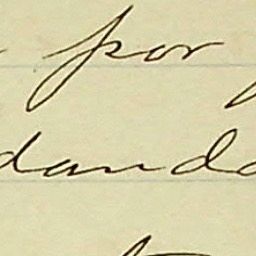 por
dando